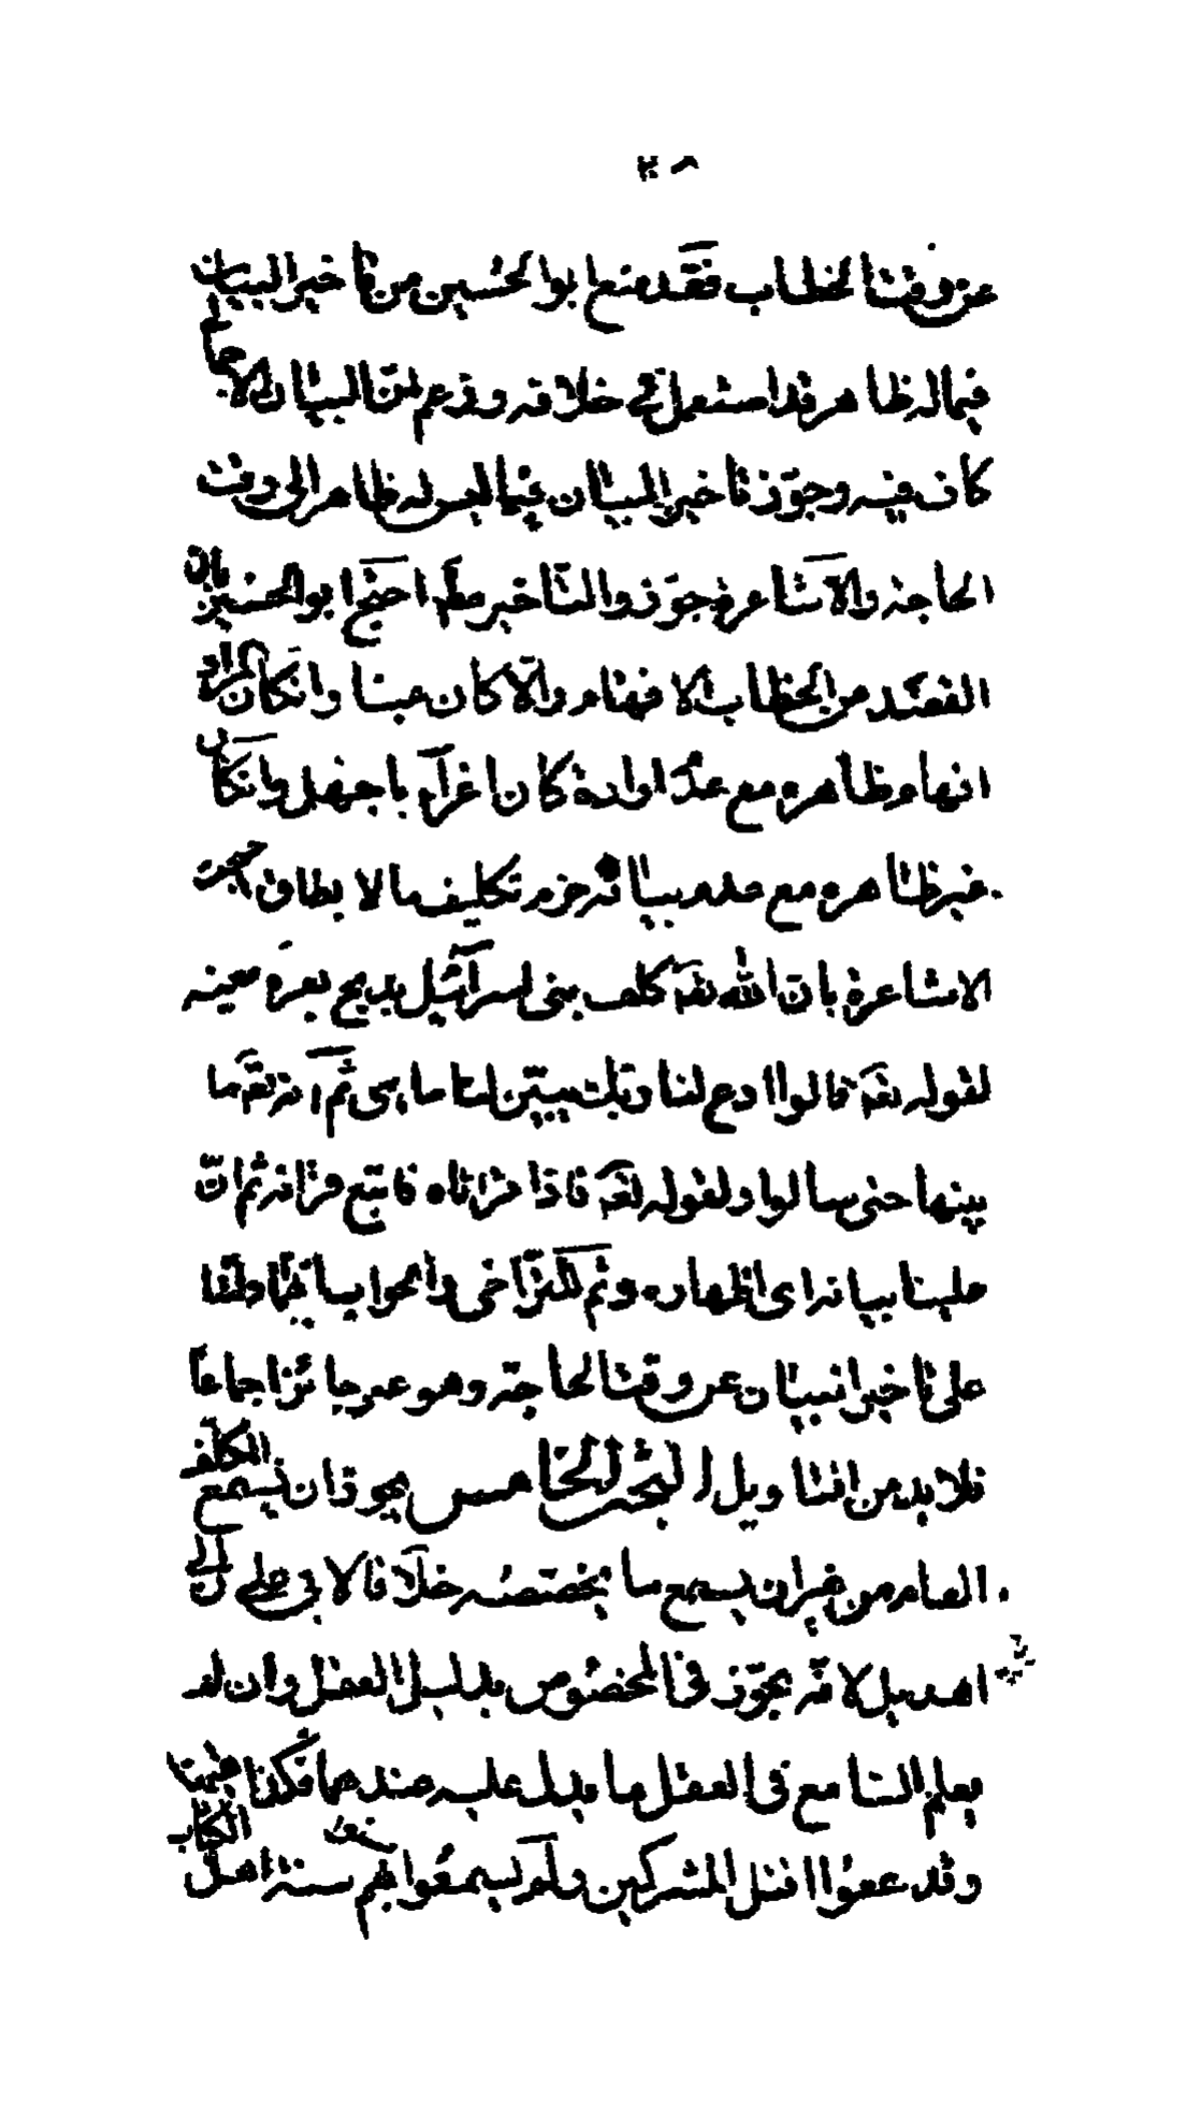 ٣٨
عن وقت الخطاب فقد منع ابوالحسين من تاخير البيان
فيما له ظاهر قد استعمل في خلافه وزعم انّ البيان الاجمالي
كاف فيه وجوّز تاخير البيان فيما ليس له ظاهر الى وقت
الحاجة والاشاعرة جوّزوا التاخير مطّ احتجّ ابوالحسين بان
القصد من الخطاب الافهام والّا كان عبثا وانكان المراد
افهام ظاهره مع عدم ارادة كان اغرآء بالجهل وانكان
غير ظاهره مع عدم بيانه لزم تكليف ما لا يطاق احتجت
الاشاعرة بان الله تعه كلف بنى اسرآئيل بذبح بقرة معينه
لقوله تعه قالوا ادع لنا ربك يبيّن لنا ما هى ثم انه تعه ما
بينها حتى سالوا ولقوله تعه فاذا قراناه فاتبع قرانه ثم انّ
علينا بيانه اى اظهاره وثم للتراخى والجواب انهما دلتا
على تاخير البيان عن وقت الحاجة وهو غير جائز اجماعا
فلا بد من التاويل البحث الخامس يجوز ان يسمع المكلف
العام من غير ان يسمع ما يخصّصه خلافا لابى على وابى
الهذيل لانّه يجوز فى المخصوص بدليل العقل وان لم
يعلم السامع فى العقل ما يدل عليه عندهما فكذا هيهنا
وقد سمعوا اقتل المشركين ولم يسمعوا سنوا بهم سنة اهل الكتاب